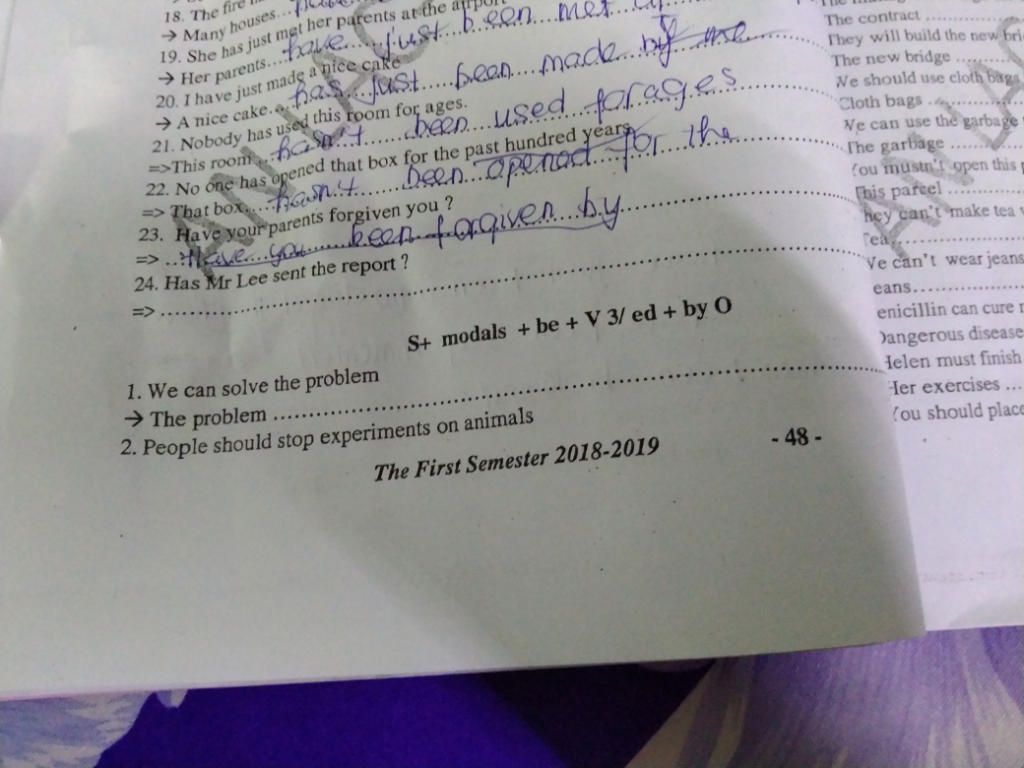 18. The fire
→ Many houses...
19. She has just met her parents at the airport
→ Her parents....have....just....been....met
20. I have just made a nice cake
→ A nice cake....has just been made by me
21. Nobody has used this room for ages.
=>This room hasn't been used for ages
22. No one has opened that box for the past hundred years
=> That box...hasn't been opened for the
23. Have your parents forgiven you ?
=> ...Have you been forgiven by
24. Has Mr Lee sent the report ?
=> ........................
S+ modals + be + V 3/ ed + by O
1. We can solve the problem
→ The problem ........................
2. People should stop experiments on animals
The First Semester 2018-2019
- 48 -
The contract ..............
They will build the new
The new bridge ..........
We should use cloth bags
Cloth bags ................
We can use the garbage
The garbage ..............
You mustn't open this
This parcel ................
They can't make tea
Tea.........................
We can't wear jeans
eans......................
enicillin can cure
Dangerous disease
Helen must finish
Her exercises ...
You should place
AN LAC
AN LAC